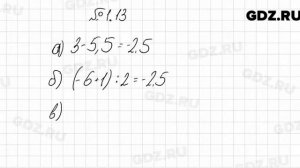 GDZ.RU
№ 1.13
а) 3-5,5=-2,5
б) (-6+1):2=-2,5
в)
GDZ.RU